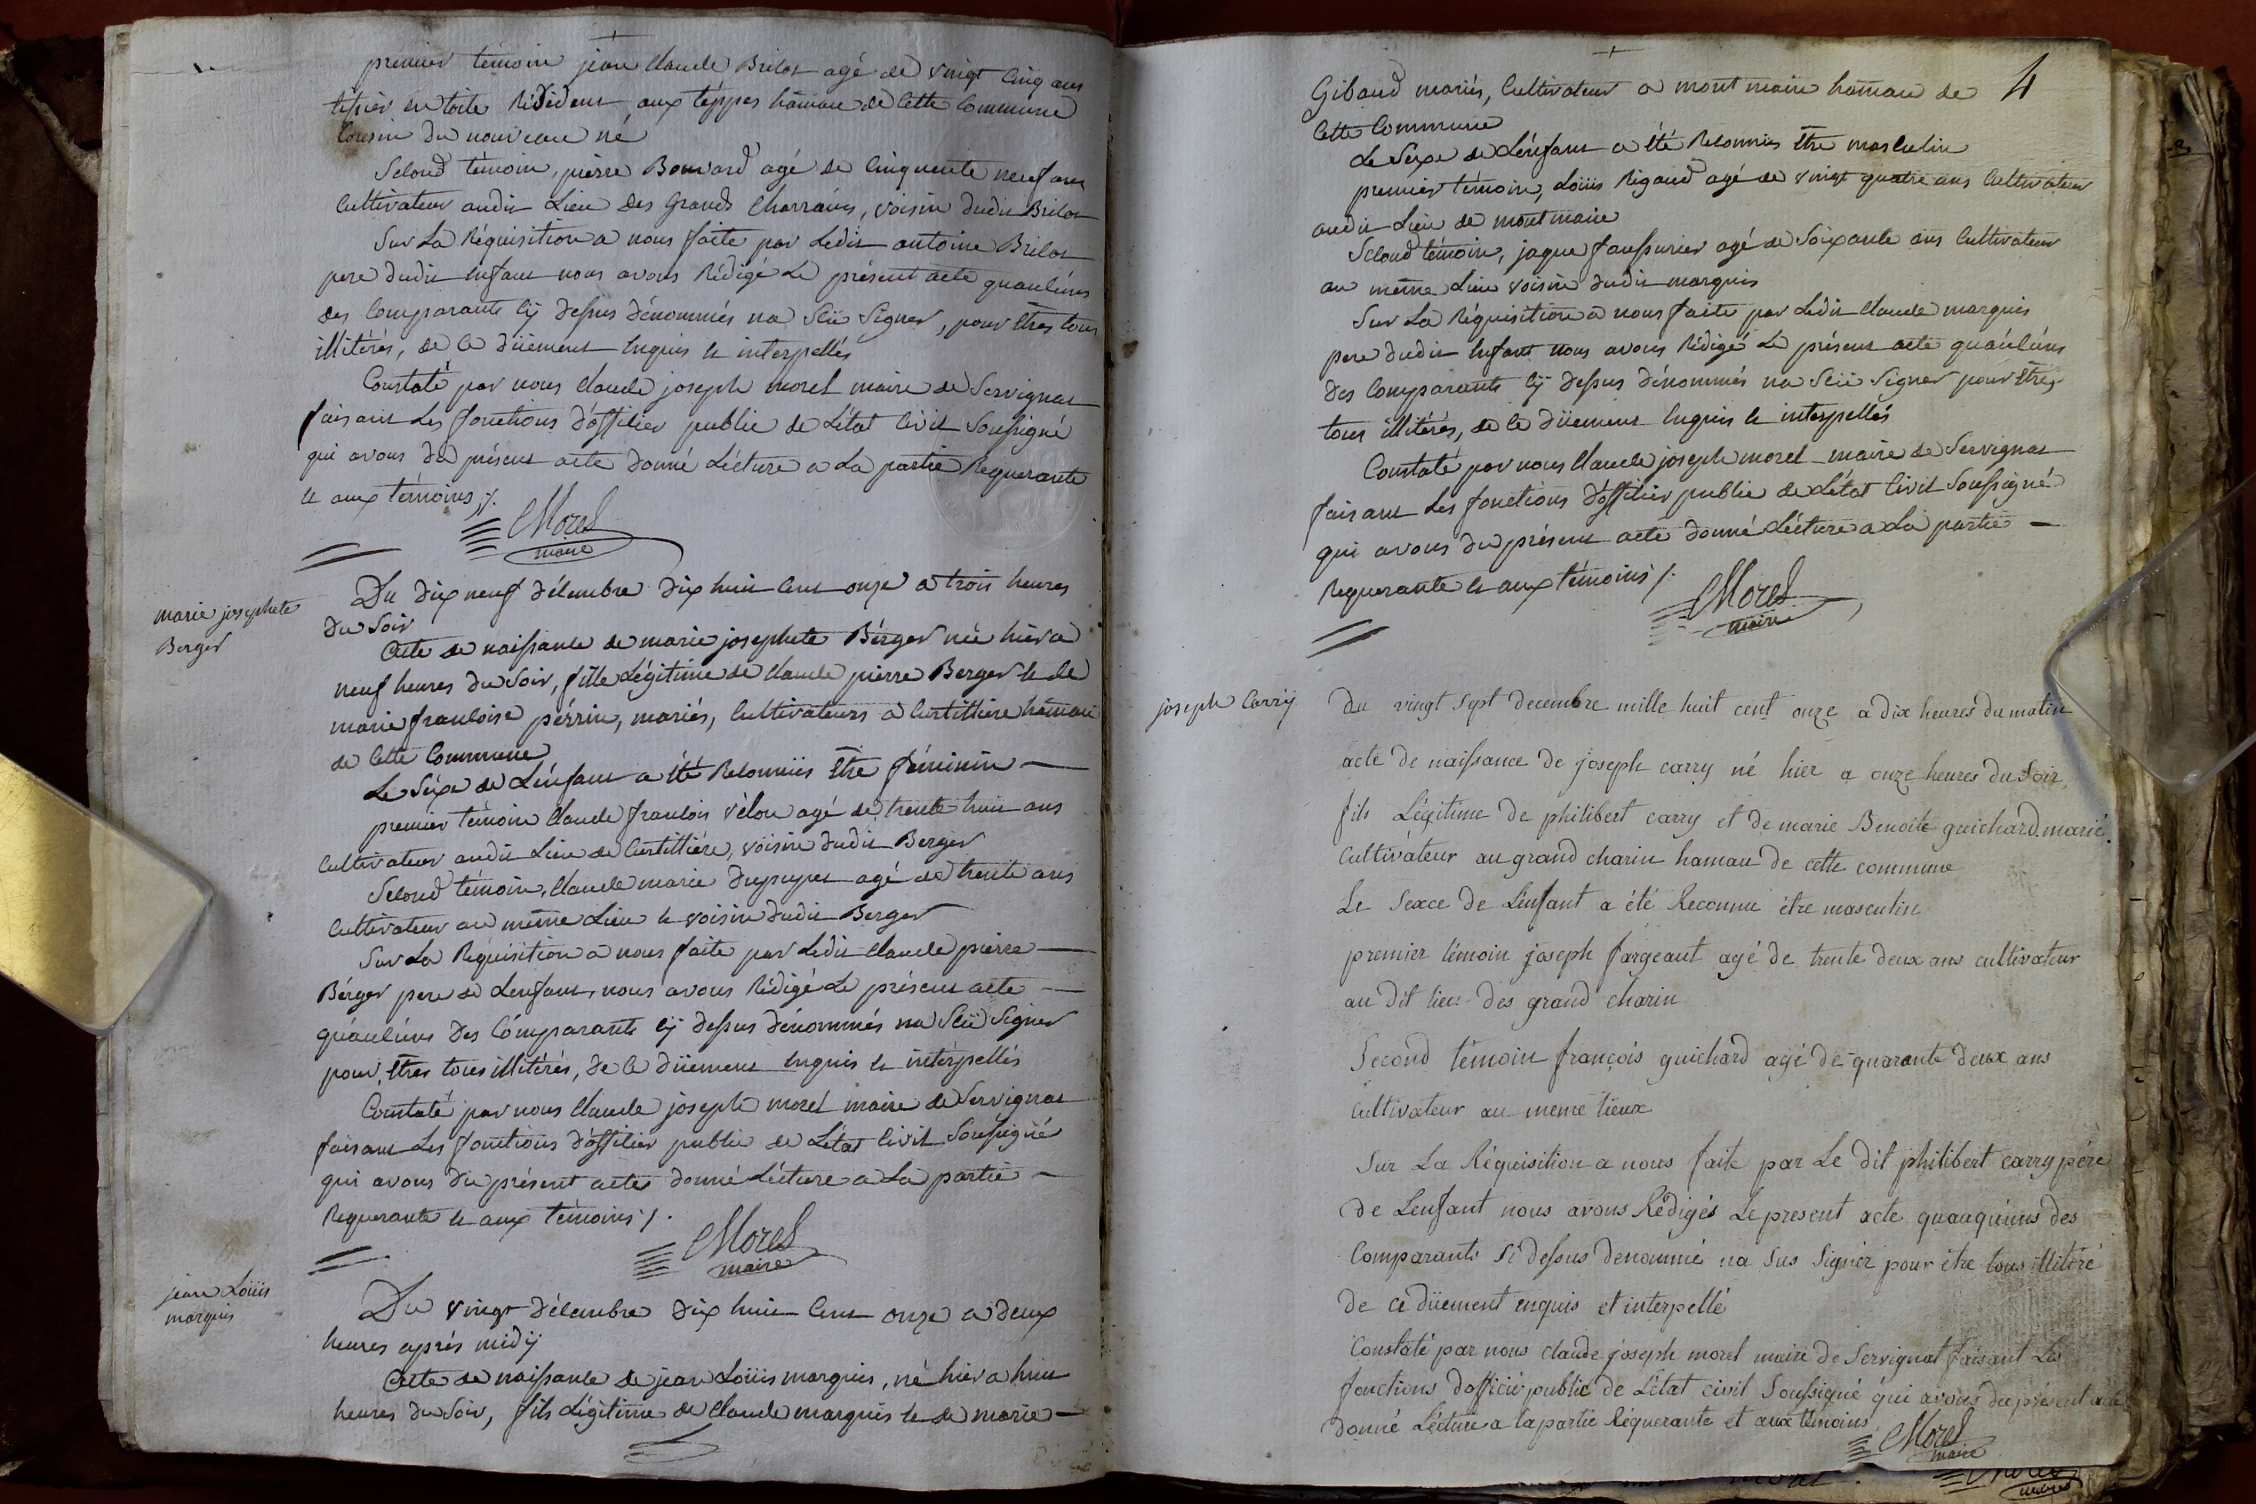 premier témoin jean Claude Brilat agé de vingt cinq ans
tissier en toile Résident aux teppes hamau de cette commune
Cousin du nouveau né
Second témoin, pierre Bouvard agé de cinquente neuf ans
Cultivateur audit Lieu des Grands Charrains, voisin dudit Brilat
Sur La Réquisition a nous faite par Ledit antoine Brilat
pere dudit Enfant nous avons Rédigé Le présent acte qu'auluns
des Comparants cÿ dessus dénommés na Sçû Signer, pour êtres tous
illitérés, de ce dûement Enquis et interpellés
Constaté par nous Claude joseph morel maire de Servignat
faisant Les fonctions d'officier public de L'état Civil Soussigné
qui avons du présent acte donné Lécture a La partie Requerante
et aux témoins ;/.
Morel
maire
marie josephete
Berger
Du dix neuf décembre dix huit cent onze a trois heures
du Soir
Acte de naissance de marie josephete Bérger née hier a
neuf heures du Soir, fille Légitime de Claude pierre Berger et de
marie francoise pérrin, mariés, Cultivateurs a Curtillière hamau
de cette Commune
Le Séxe de L'énfant a été Reconnûs être féminin —
premier témoin Claude francois vélon agé de trente huit ans
Cultivateur audit Lieu de Curtilliére, voisin dudit Berger
Second témoin, Claude marie dupupet agé de trente ans
Cultivateur au même Lieu et voisin dudit Berger
Sur La Réquisition a nous faite par Ledit Claude pierre —
Bérger pere de Lenfant, nous avons Rédigé Le présent acte —
qu'auluns des Comparants cÿ dessus dénommés na Sçû Signer
pour êtres tous illitérés, de ce dûement Enquis et intérpellés
Constaté par nous Claude joseph morel maire de Servignat
faisant Les fonctions d'officier public de L'état Civil Soussigné
qui avons du présent acte donné Lécture a La partie —
Requerante et aux témoins /.
Morel
maire
jean Loüis
marquis
Du vingt décembre dix huit cent onze a deux
heures aprés midÿ
Acte de naissance de jean Loüis marquis, né hier a huit
heures du Soir, fils Légitime de Claude marquis et de marie —
4
Gibaud mariés, Cultivateur a mont main hamau de
Cette Commune
Le Sexe de L'énfant a été Reconnus être masculin
premier témoin, Loüis Rigaud agé de vingt quatre ans Cultivateur
audit Lieu de mont main
Second témoin, jaque faussurier agé de Soixante ans Cultivateur
au même Lieu voisin dudit marquis
Sur La Réquisition a nous faite par Ledit Claude marquis
pere dudit Enfant nous avons Rédigé Le présent acte qu'auluns
des Comparants cÿ dessus dénommés na Sçû Signer pour êtres
tous illitérés, de ce dûement Enquis et interpellés
Constaté par nous Claude joseph morel maire de Servignat
faisant Les fonctions d'officier public de L'état Civil Soussigné
qui avons du présent acte donné Lécture a La partie —
Requerante et aux témoins /.
Morel
maire
joseph Carrÿ
Du vingt sept decembre mille huit cent onze a dix heures du matin
acte de naissance de joseph carry né hier a onze heures du Soir,
fils Légitime de philibert carry et de marie Benoite guichard marié
Cultivateur au grand charin hamau de cette commune
Le Sexce de Lenfant a été Reconnu être masculin
premier témoin joseph fargeaut agé de trente deux ans cultivateur
au dit lieu des grand charin
Second témoin françois guichard agé de quarante deux ans
Cultivateur au meme lieux
Sur La Réquisition a nous faite par Le dit philibert carry pére
de Lenfant nous avons Rédigés Le present acte quauquuns des
Comparants Si dessus denommé na Sus Signér pour être tous illitéré
de ce dûement enquis et interpellé
Constaté par nous claude joseph morel maire de Servignat faisant Les
fonctions dofficié public de L'état civil Soussigné qui avons du present acte
donné Lécture a la partie Réquerante et aux témoins
Morel
maire